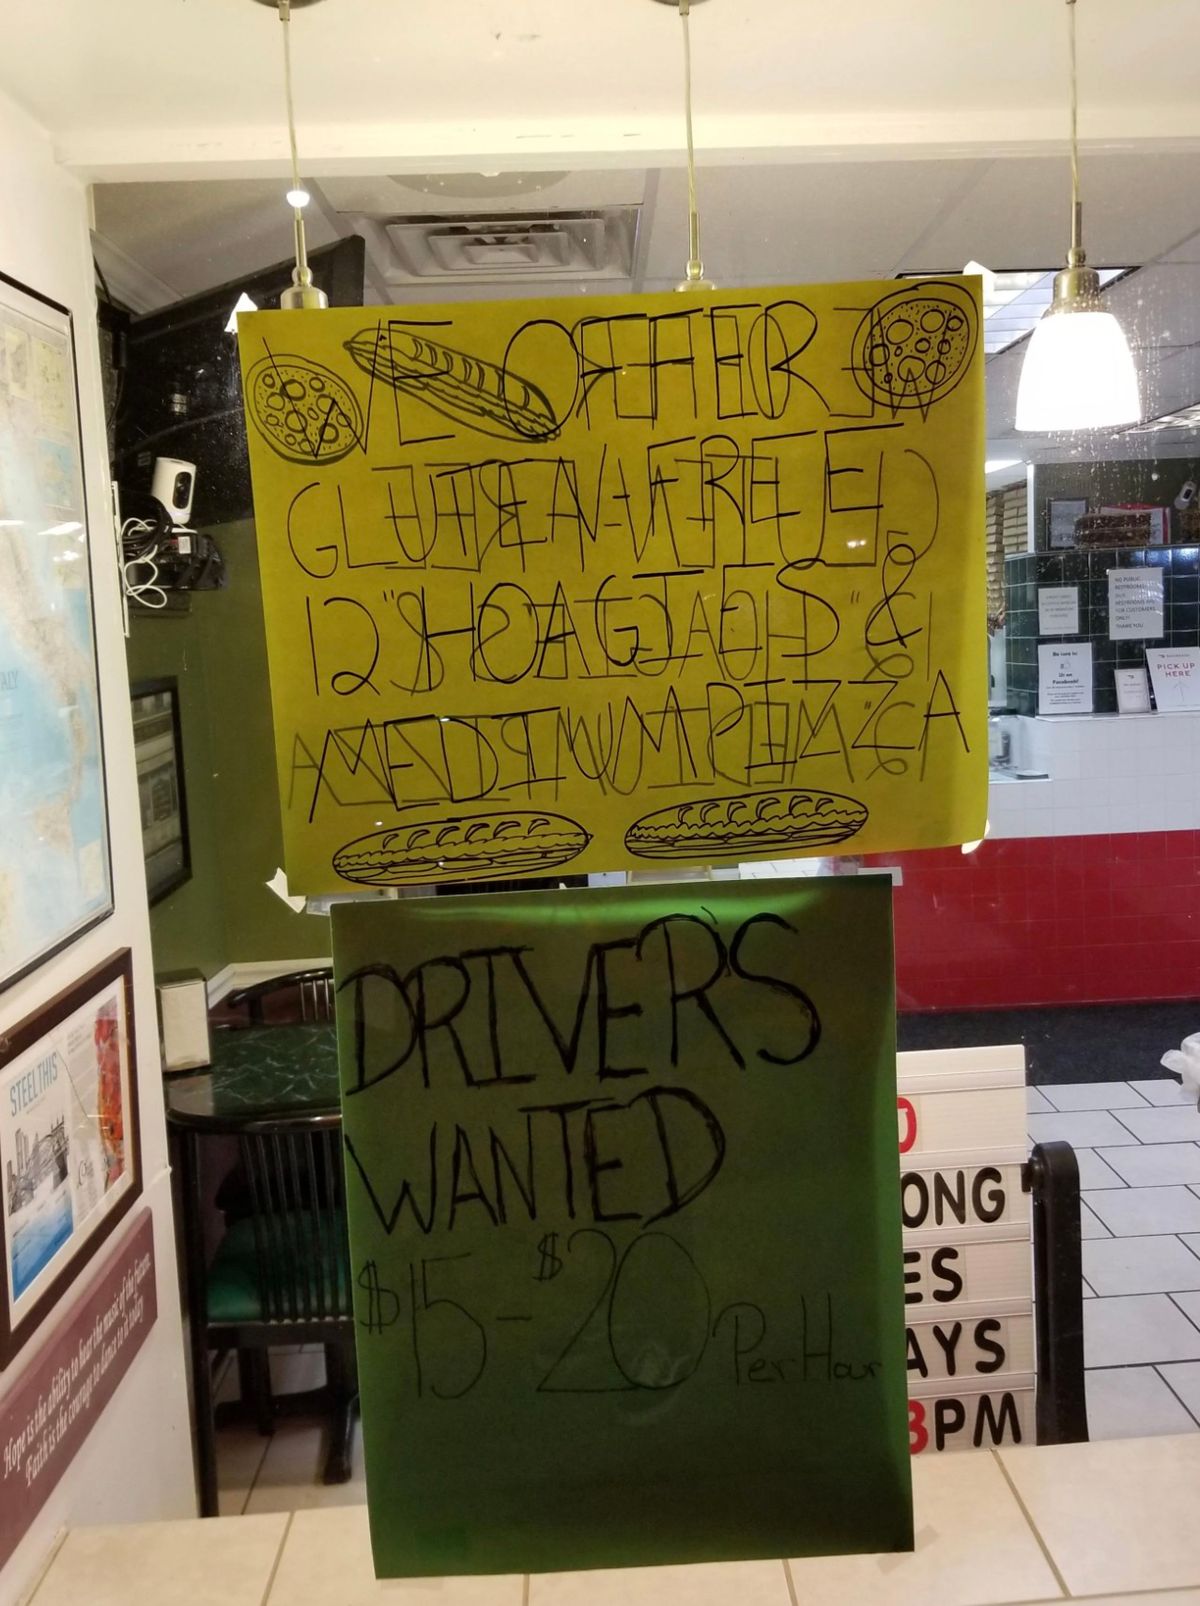 WE OFFER
GLUTEN-FREE
12" HOAGIES &
MEDIUM PIZZA
DRIVER'S
WANTED
$15-$20 Per Hour
ONG
ES
AYS
3PM
STEEL THIS
Hope is the ability to hear the music of the future.
Faith is the courage to dance to it today
NO PUBLIC
RESTROOMS!
OUR
RESTROOMS ARE
FOR CUSTOMERS
ONLY!
THANK YOU
Be sure to
Us on
Facebook!
PICK UP
HERE
ALY